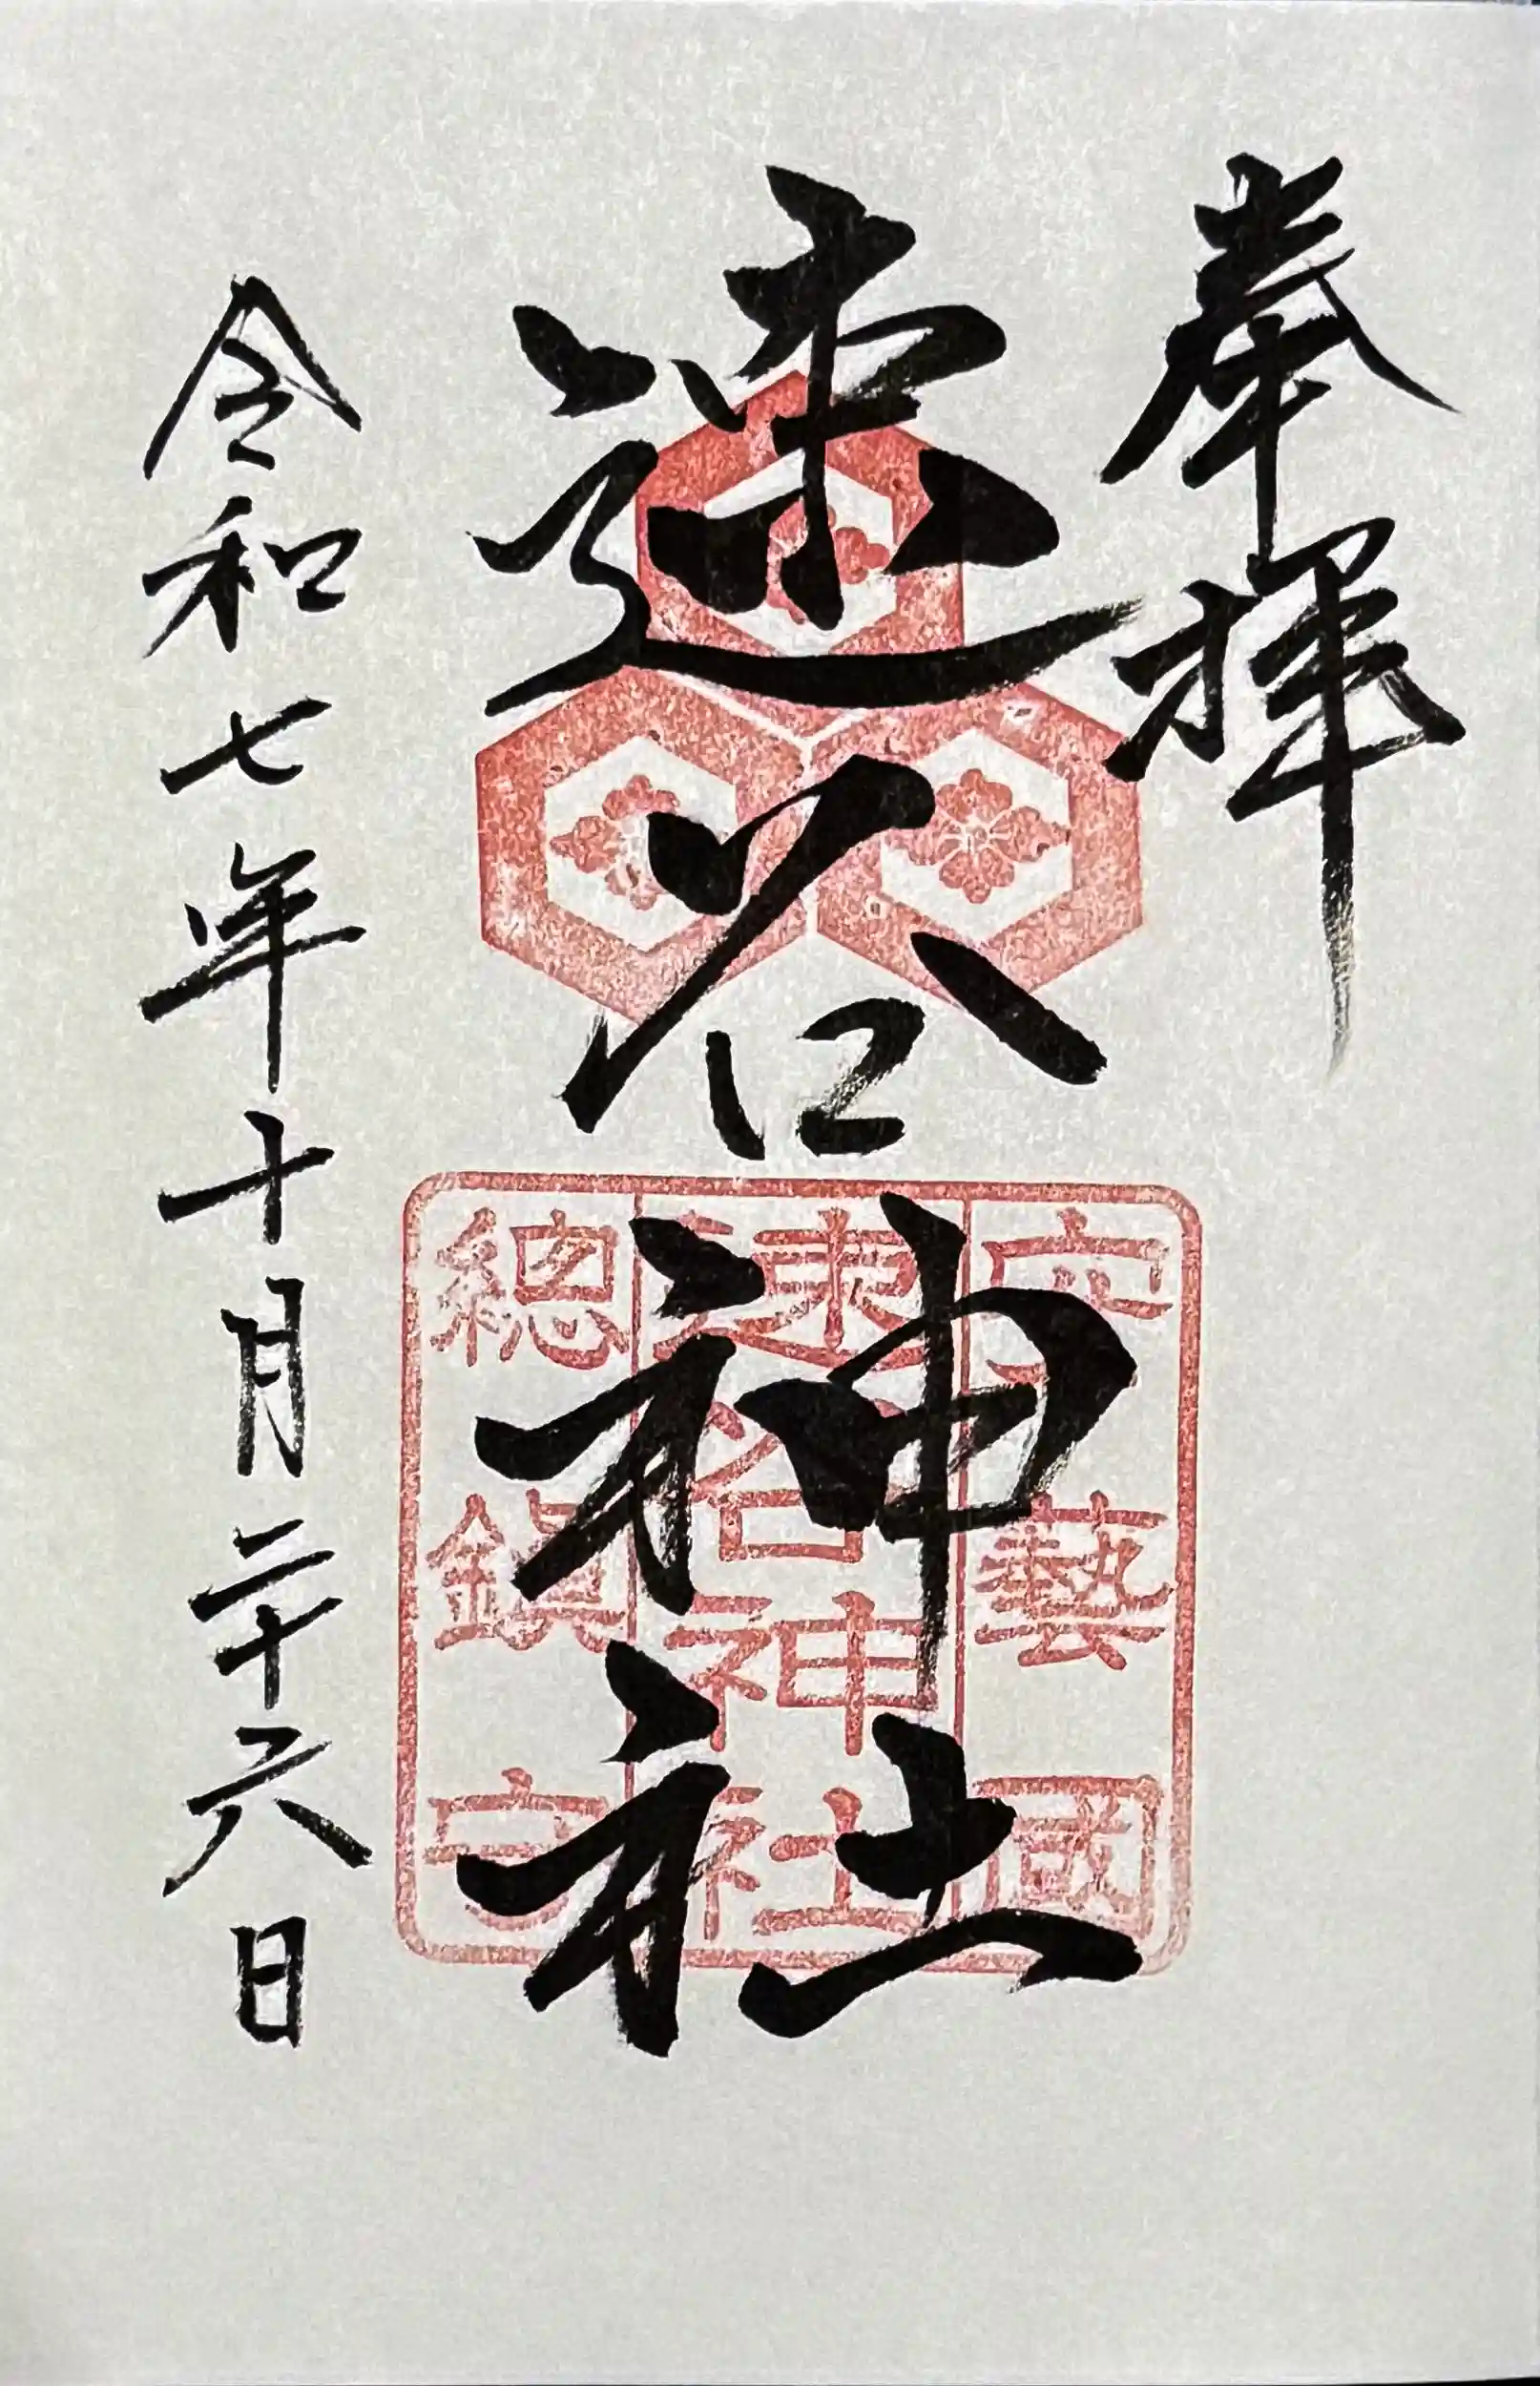 奉拝
速谷神社
安藝國
速谷神社
總鎭守
令和七年十月二十六日